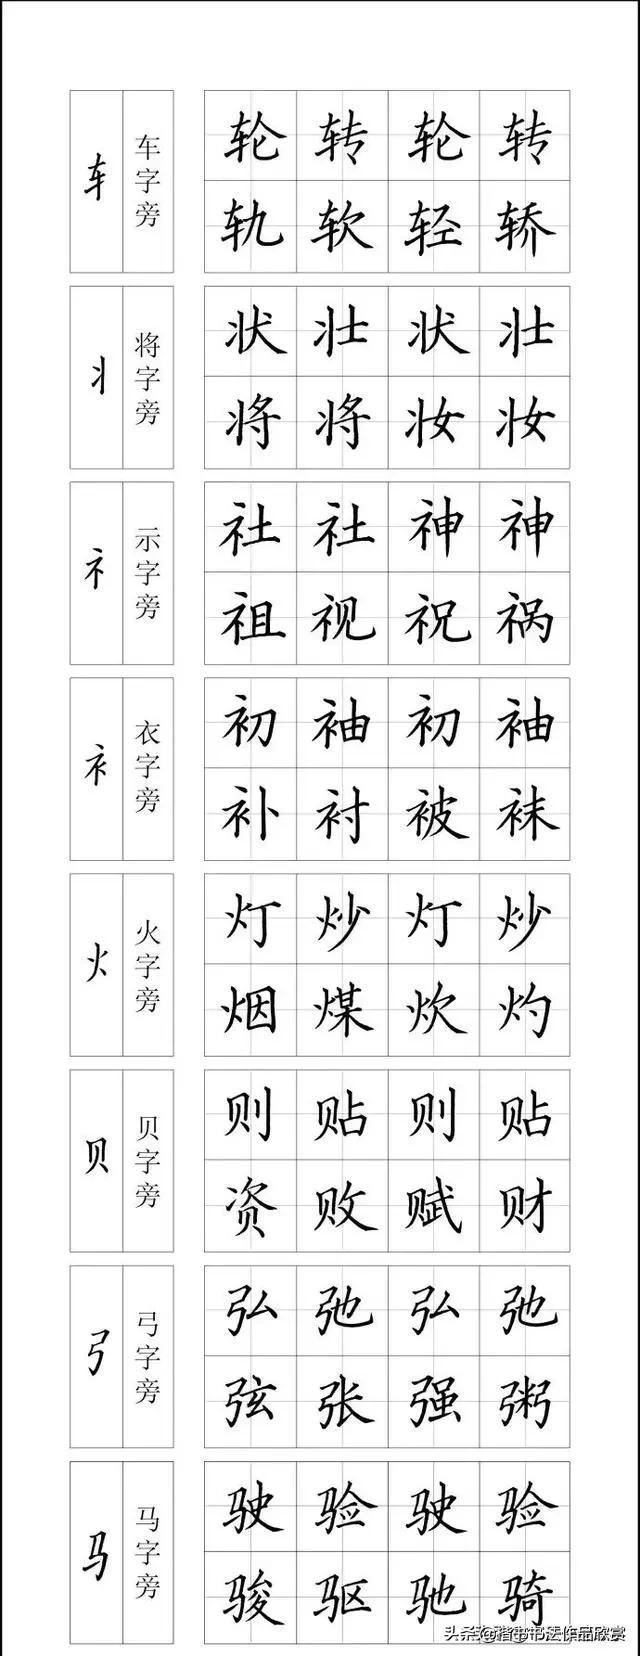 车 车字旁
轮 转 轮 转
轨 软 轻 轿
丬 将字旁
状 壮 状 壮
将 将 妆 妆
礻 示字旁
社 社 神 神
祖 视 祝 祸
衤 衣字旁
初 袖 初 袖
补 衬 被 袜
火 火字旁
灯 炒 灯 炒
烟 煤 炊 灼
贝 贝字旁
则 贴 则 贴
资 败 赋 财
弓 弓字旁
弘 弛 弘 弛
弦 张 强 粥
马 马字旁
驶 验 驶 验
骏 驱 驰 骑
头条@楷书书法作品欣赏